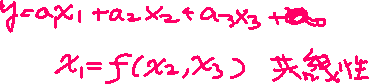 y=a₁x₁+a₂x₂+a₃x₃+
x₁=f(x₂,x₃) 共線性